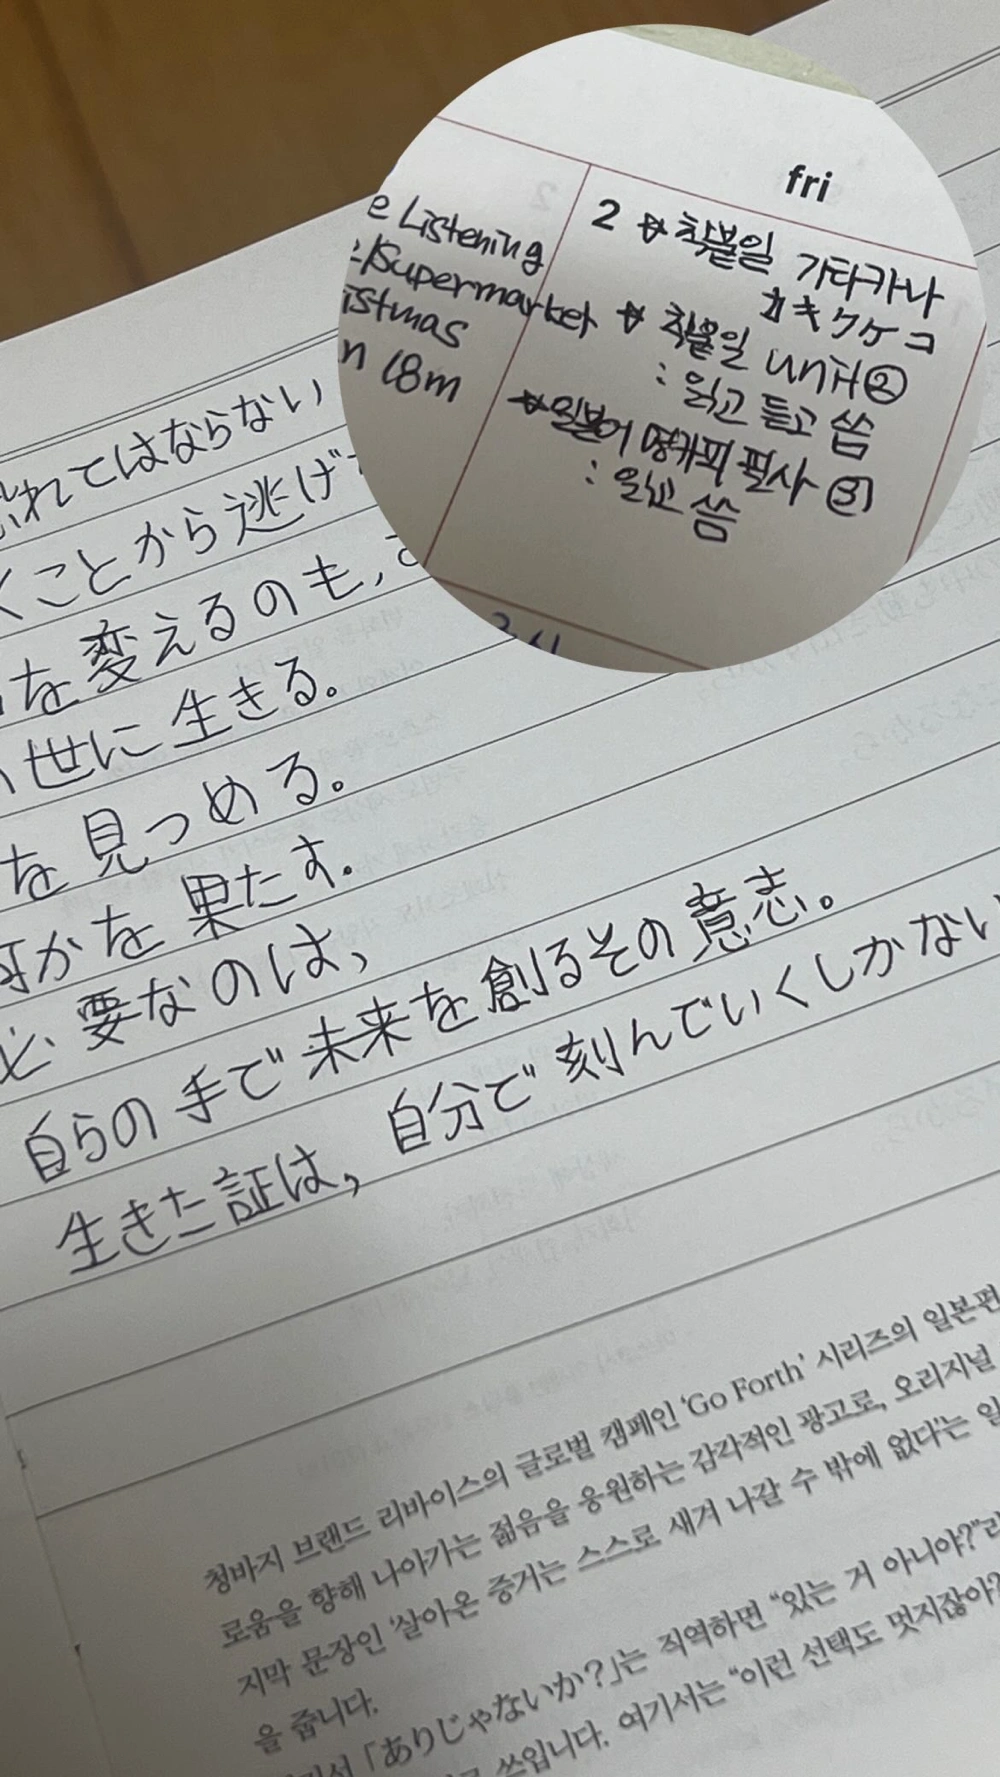 fri
2 ☆ 착붙일 가타카나
カキクケコ
☆ 착붙일 unit②
: 읽고 듣고 씀
☆ 일본어 명카피 필사 ③
: 읽고 씀
e Listening
Supermarket
istmas
n 18m
れてはならない
くことから逃げ
を変えるのも,
世に生きる。
を見つめる。
何かを果たす。
必要なのは,
自らの手で未来を創るその意志。
生きた証は, 自分で刻んでいくしかない
청바지 브랜드 리바이스의 글로벌 캠페인 ‘Go Forth’ 시리즈의 일본편
로움을 향해 나아가는 젊음을 응원하는 감각적인 광고로, 오리지널
지막 문장인 ‘살아온 증거는 스스로 새겨 나갈 수 밖에 없다’는 일
을 줍니다.
「ありじゃないか?」는 직역하면 “있는 거 아니야?”라
쓰입니다. 여기서는 “이런 선택도 멋지잖아?